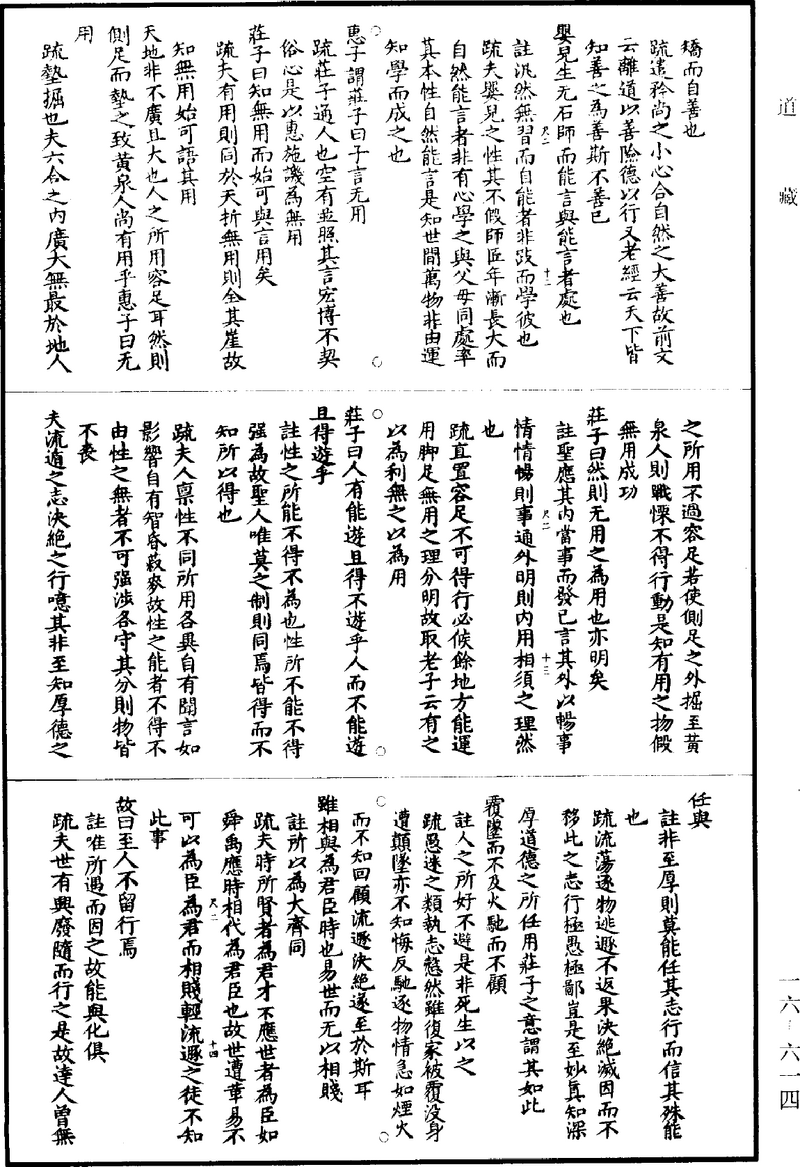 道藏
矯而自善也
疏遣矜尚之小心合自然之大善故前文
云離道以善險德以行又老經云天下皆
知善之為善斯不善已
嬰兒生无石師而能言與能言者處也
註汎然無習而自能者非跂而學彼也
疏夫嬰兒之性其不假師匠年漸長大而
自然能言者非有心學之與父母同處率
其本性自然能言是知世間萬物非由運
知學而成之也
惠子謂莊子曰子言无用
疏莊子通人也空有並照其言宏博不契
俗心是以惠施譏為無用
莊子曰知無用而始可與言用矣
疏夫有用則同於夭折無用則全其崖故
知無用始可語其用
天地非不廣且大也人之所用容足耳然則
側足而墊之致黃泉人尚有用乎惠子曰无
用
疏墊掘也夫六合之內廣大無最於地人
之所用不過容足若使側足之外掘至黃
泉人則戰慄不得行動是知有用之物假
無用成功
莊子曰然則无用之為用也亦明矣
註聖應其內當事而發已言其外以暢事
情情暢則事通外明則內用相須之理然
也
疏直置容足不可得行必候餘地方能運
用脚足無用之理分明故取老子云有之
以為利無之以為用
莊子曰人有能遊且得不遊乎人而不能遊
且得遊乎
註性之所能不得不為也性所不能不得
强為故聖人唯莫之制則同焉皆得而不
知所以得也
疏夫人稟性不同所用各異自有聞言如
影響自有智昏菽麥故性之能者不得不
由性之無者不可强涉各守其分則物皆
不喪
夫流遁之志決絕之行噫其非至知厚德之
任與
註非至厚則莫能任其志行而信其殊能
也
疏流蕩逐物逃遯不返果決絕滅因而不
移此之志行極愚極鄙豈是至妙真知深
厚道德之所任用莊子之意謂其如此
覆墜而不及火馳而不顧
註人之所好不避是非死生以之
疏愚迷之類執志慤然雖復家被覆没身
遭顛墜亦不知悔反馳逐物情急如煙火
而不知回顧流遯決絕遂至於斯耳
雖相與為君臣時也易世而无以相賤
註所以為大齊同
疏夫時所賢者為君才不應世者為臣如
舜禹應時相代為君臣也故世遭革易不
可以為臣為君而相賤輕流遯之徒不知
此事
故曰至人不留行焉
註唯所遇而因之故能與化俱
疏夫世有興廢隨而行之是故達人曾無
尺二
十二
尺二
十三
尺二
十四
一六-六一四